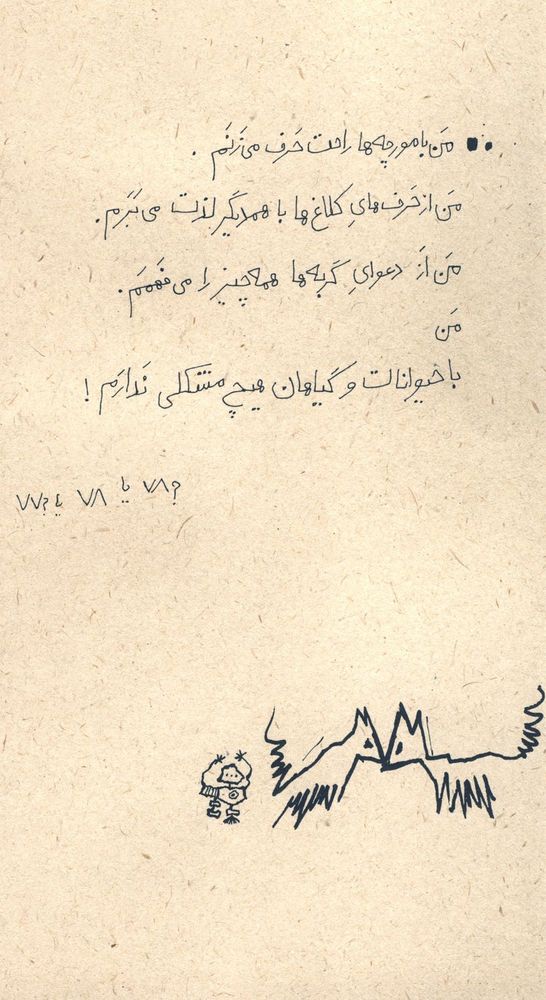 مَن با مورچه‌ها راحت حَرف می‌زَنَم .
مَن از حَرف‌هایِ کلاغ‌ها با همدیگر لذت می‌بَرَم .
مَن اَز دعوایِ گربه‌ها همه چیز را می‌فَهمَم .
مَن
با حیوانات و گیاهان هیچ مشکلی نَدارَم !
؟۷۸ یا ۷۸ یا ؟۷۷